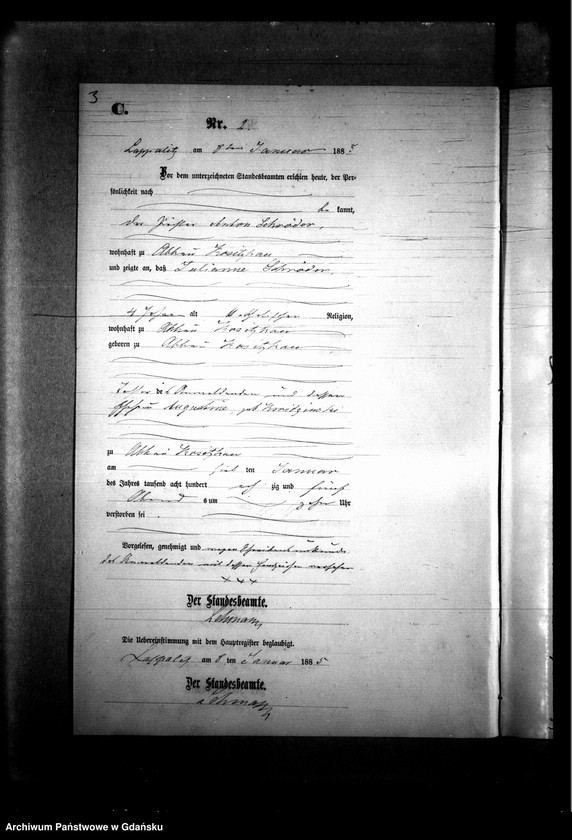 3
C.
Nr. 2
Lappalitz am 8ten Januar 1885
Vor dem unterzeichneten Standesbeamten erschien heute, der Per-
sönlichkeit nach
be kannt,
der Anton Schröder,
wohnhaft zu Abbau
und zeigte an, daß Julianne Schröder
4 Jahre alt katholischer Religion,
wohnhaft zu Abbau
geboren zu Abbau
Tochter des Anmeldenden und dessen
Ehefrau Augustine, geb
zu Abbau
am ten Januar
des Jahres tausend acht hundert acht zig und fünf
Abend s um Uhr
verstorben sei
Vorgelesen, genehmigt und wegen
des Anmeldenden mit dessen Handzeichen versehen
+++
Der Standesbeamte.
Lehmann
Die Uebereinstimmung mit dem Hauptregister beglaubigt.
Lappalitz am 8 ten Januar 1885
Der Standesbeamte.
Lehmann
Archiwum Państwowe w Gdańsku